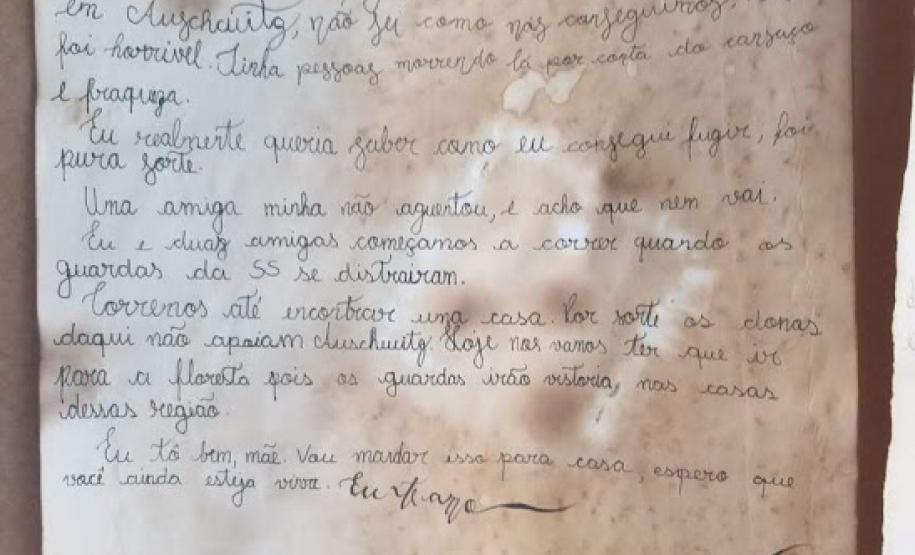 em Auschwitz, não sei como nós conseguimos,
foi horrivel. Tinha pessoas morrendo lá por conta do cansaço
e fraqueza.
Eu realmente queria saber como eu consegui fugir, foi
pura sorte.
Uma amiga minha não aguentou, e acho que nem vai.
Eu e duas amigas começamos a correr quando os
guardas da SS se distrairam.
Corremos até encontrar uma casa. Por sorte os donos
daqui não apoiam Auschwitz. Hoje nos vamos ter que ir
para a floresta pois os guardas irão vistoria, nas casas
dessas região.
Eu tô bem, mãe. Vou mandar isso para casa, espero que
você ainda esteja viva. Eu te amo